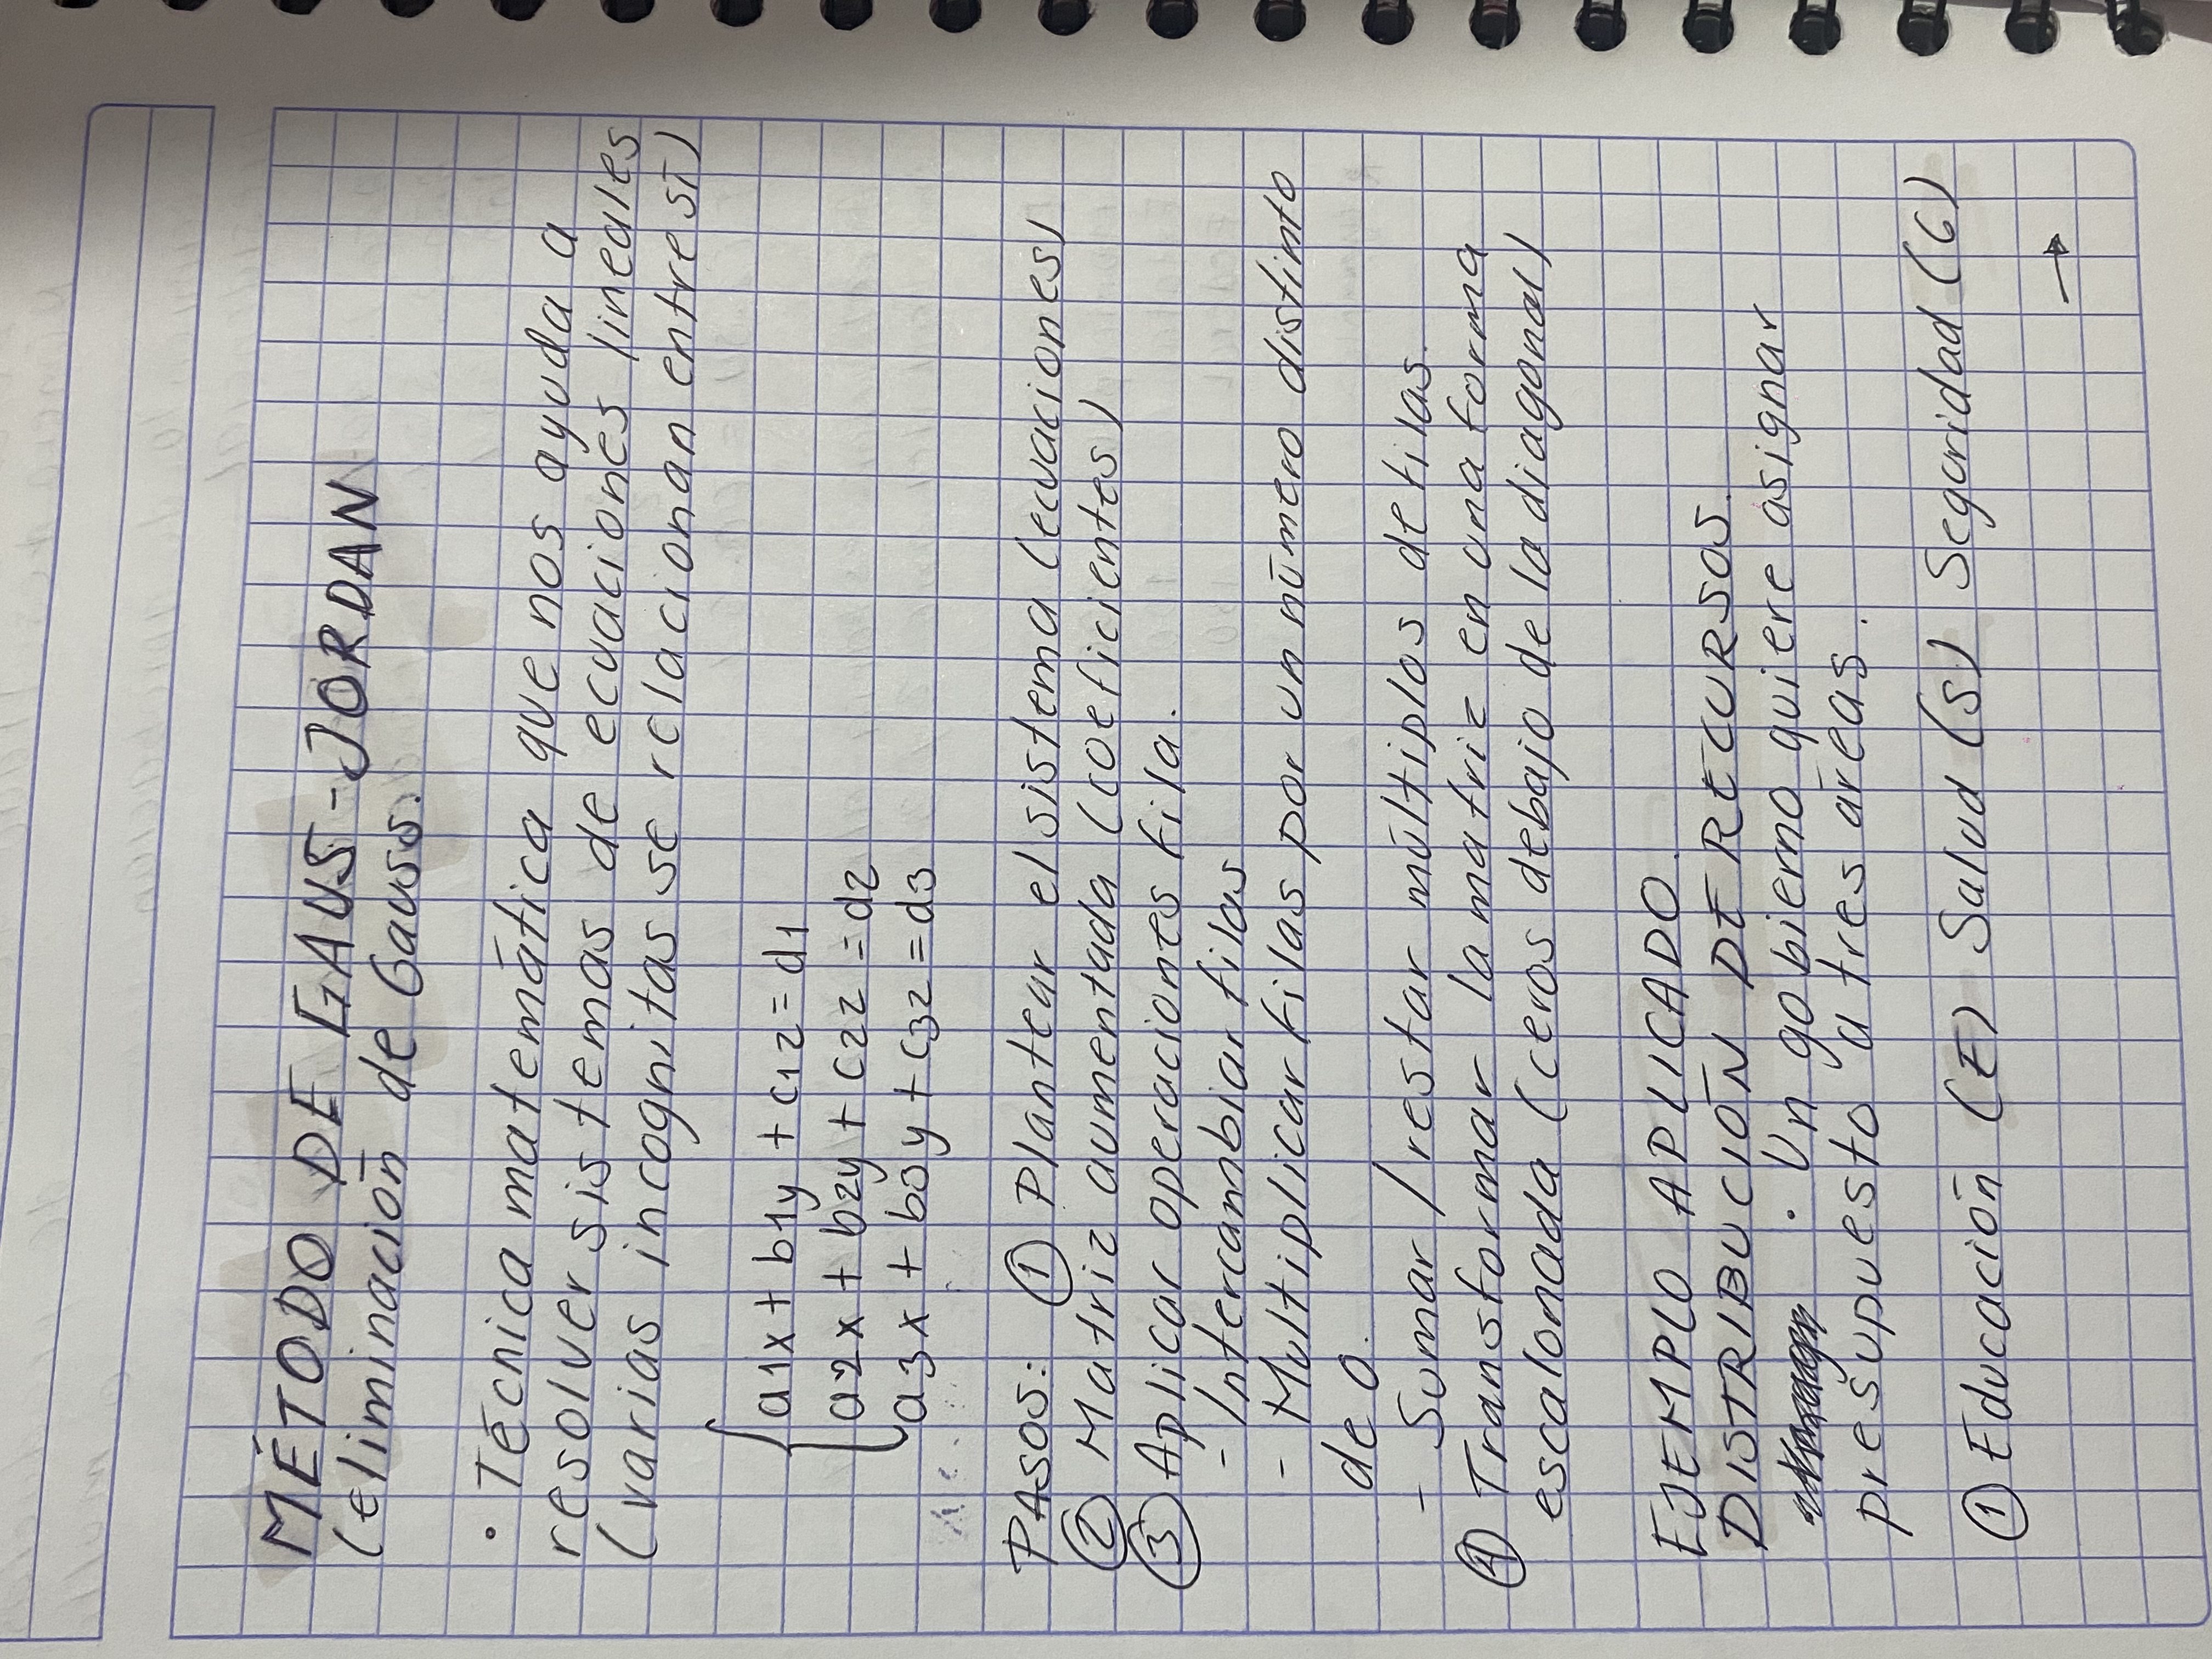 MÉTODO DE GAUS-JORDAN
(eliminación de Gauss.
• Técnica matemática que nos ayuda a
resolver sistemas de ecuaciones lineales
(varias incognitas se relacionan entre sí)
a1x + b1y + c1z = d1
a2x + b2y + c2z = d2
a3x + b3y + c3z = d3
PASOS: ① Plantear el sistema (ecuaciones)
② Matriz aumentada (coeficientes)
③ Aplicar operaciones fila.
- Intercambiar filas
- Multiplicar filas por un número distinto
de 0.
- Sumar / restar múltiplos de filas.
④ Transformar la matriz en una forma
escalonada (ceros debajo de la diagonal)
EJEMPLO APLICADO.
DISTRIBUCIÓN DE RECURSOS.
• Un gobierno quiere asignar
presupuesto a tres áreas.
① Educación (E) Salud (S) Seguridad (G)
→